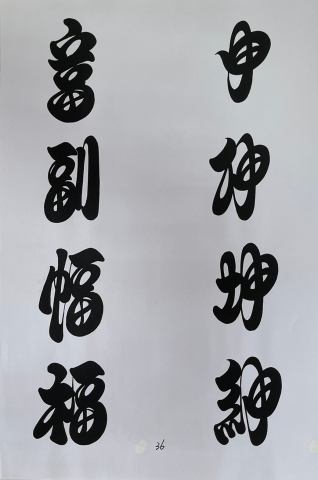 申
伸
坤
紳
富
副
幅
福
36